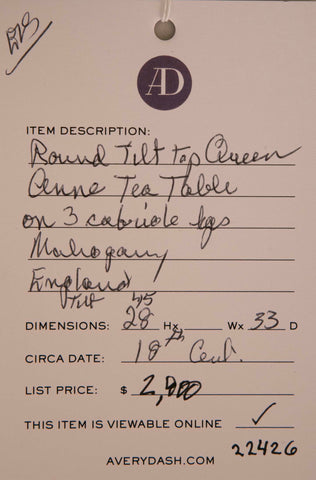 AD
ITEM DESCRIPTION:
Round Tilt Top Queen
Anne Tea Table
on 3 cabriole legs
Mahogany
England
Tilt 45
DIMENSIONS: 28 Hx Wx 33 D
CIRCA DATE: 18th Cent.
LIST PRICE: $
THIS ITEM IS VIEWABLE ONLINE ✓
22426
AVERYDASH.COM